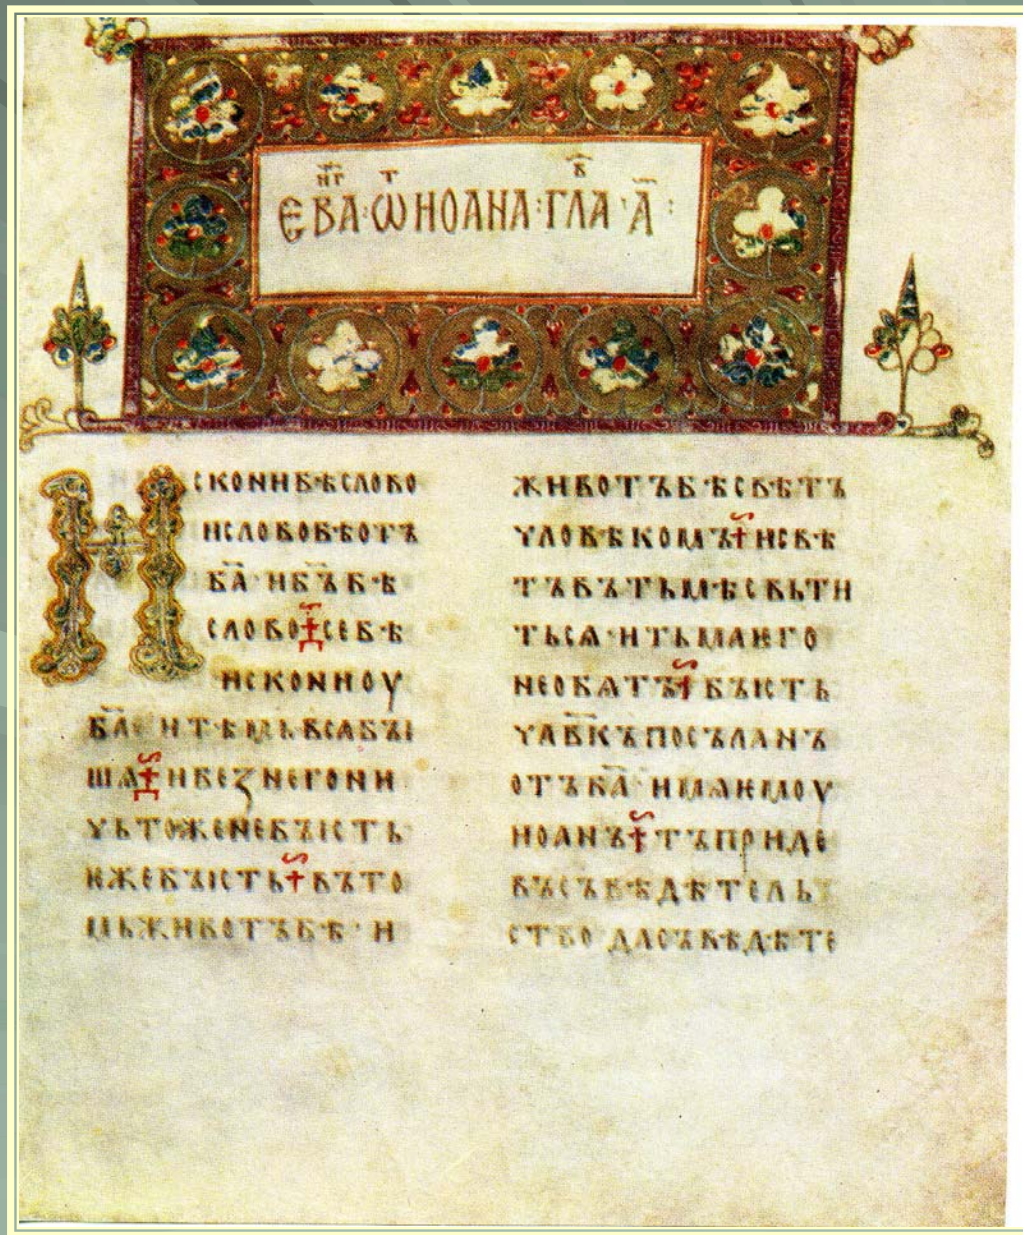 ЕВАⷩ҇ⷢ : Ѡⷮ ИОАНА : ГЛАⷡ҇ · А҃ :
ИСКОНИБѢСЛОВО
ИСЛОВОБѢОТЪ
БА҃ · ИБЪ҃БѢ
СЛОВО СЕБѢ
ИСКОНИОУ
БА҃ · ИТѢМЬВСАБЫ
ШѦ ИБЕЗНЕГОНИ
ЧЬТОЖЕНЕБЪІСТЬ
ѤЖЕБЪІСТЬ ВЪТО
МЬЖИВОТЪБѢ · И
ЖИВОТЪБѢСВѢТЪ
ЧЛОВѢКОМЪ ИСВѢ
ТЪВЪТЬМѢСВЬТИ
ТЬСѦ · ИТЬМАѤГО
НЕОБѦТЪ БЪІСТЬ
ЧЛВ҃КЪПОСЪЛАНЪ
ОТЪБА҃ · ИМѦѤМОУ
ИОАНЪ ТЪПРИДЕ
ВЪСЪВѢДѢТЕЛЬ
СТВО ДАСЪВѢДѢТЕ